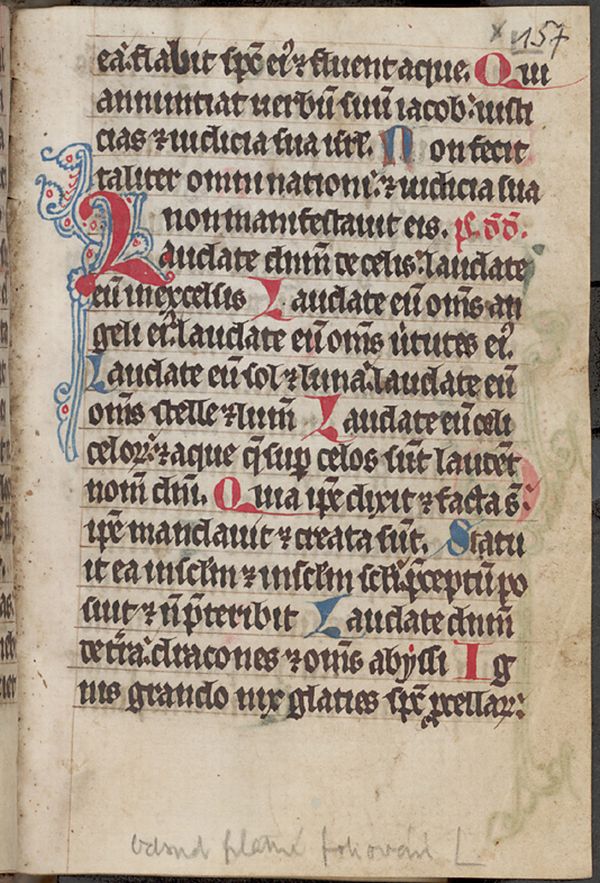 157
ea. flabit spc̄ ei᷒ ⁊ fluent aque. Qui
annunciat uerbū suū iacob: iusti
cias ⁊ iudicia sua isrl̄. Non fecit
taliter omni nationi: ⁊ iudicia sua
non manifestauit eis. ps. dd.
Laudate dnm̄ de celis: laudate
eū in excelsis Laudate eū oms̄ an
geli ei᷒: laudate eū oms̄ ūtutes ei᷒.
Laudate eū sol ⁊ luna: laudate eū
oms̄ stelle ⁊ lum̄ Laudate eū celi
celoꝝ: ⁊ aque q̄ sup̄ celos sūt laudēt
nom̄ dnī. Quia ip̄e dixit ⁊ facta s̄:
ip̄e mandauit ⁊ creata sūt. Statu
it ea in sclm̄ ⁊ in sclm̄ scli̅: p̄ceptū po
suit ⁊ n̄ p̄teribit Laudate dnm̄
de tr̄a: dracones ⁊ oms̄ abyssi Ig
nis grando nix glacies spc̄ ꝓcellaꝝ:
odsud platné foliování